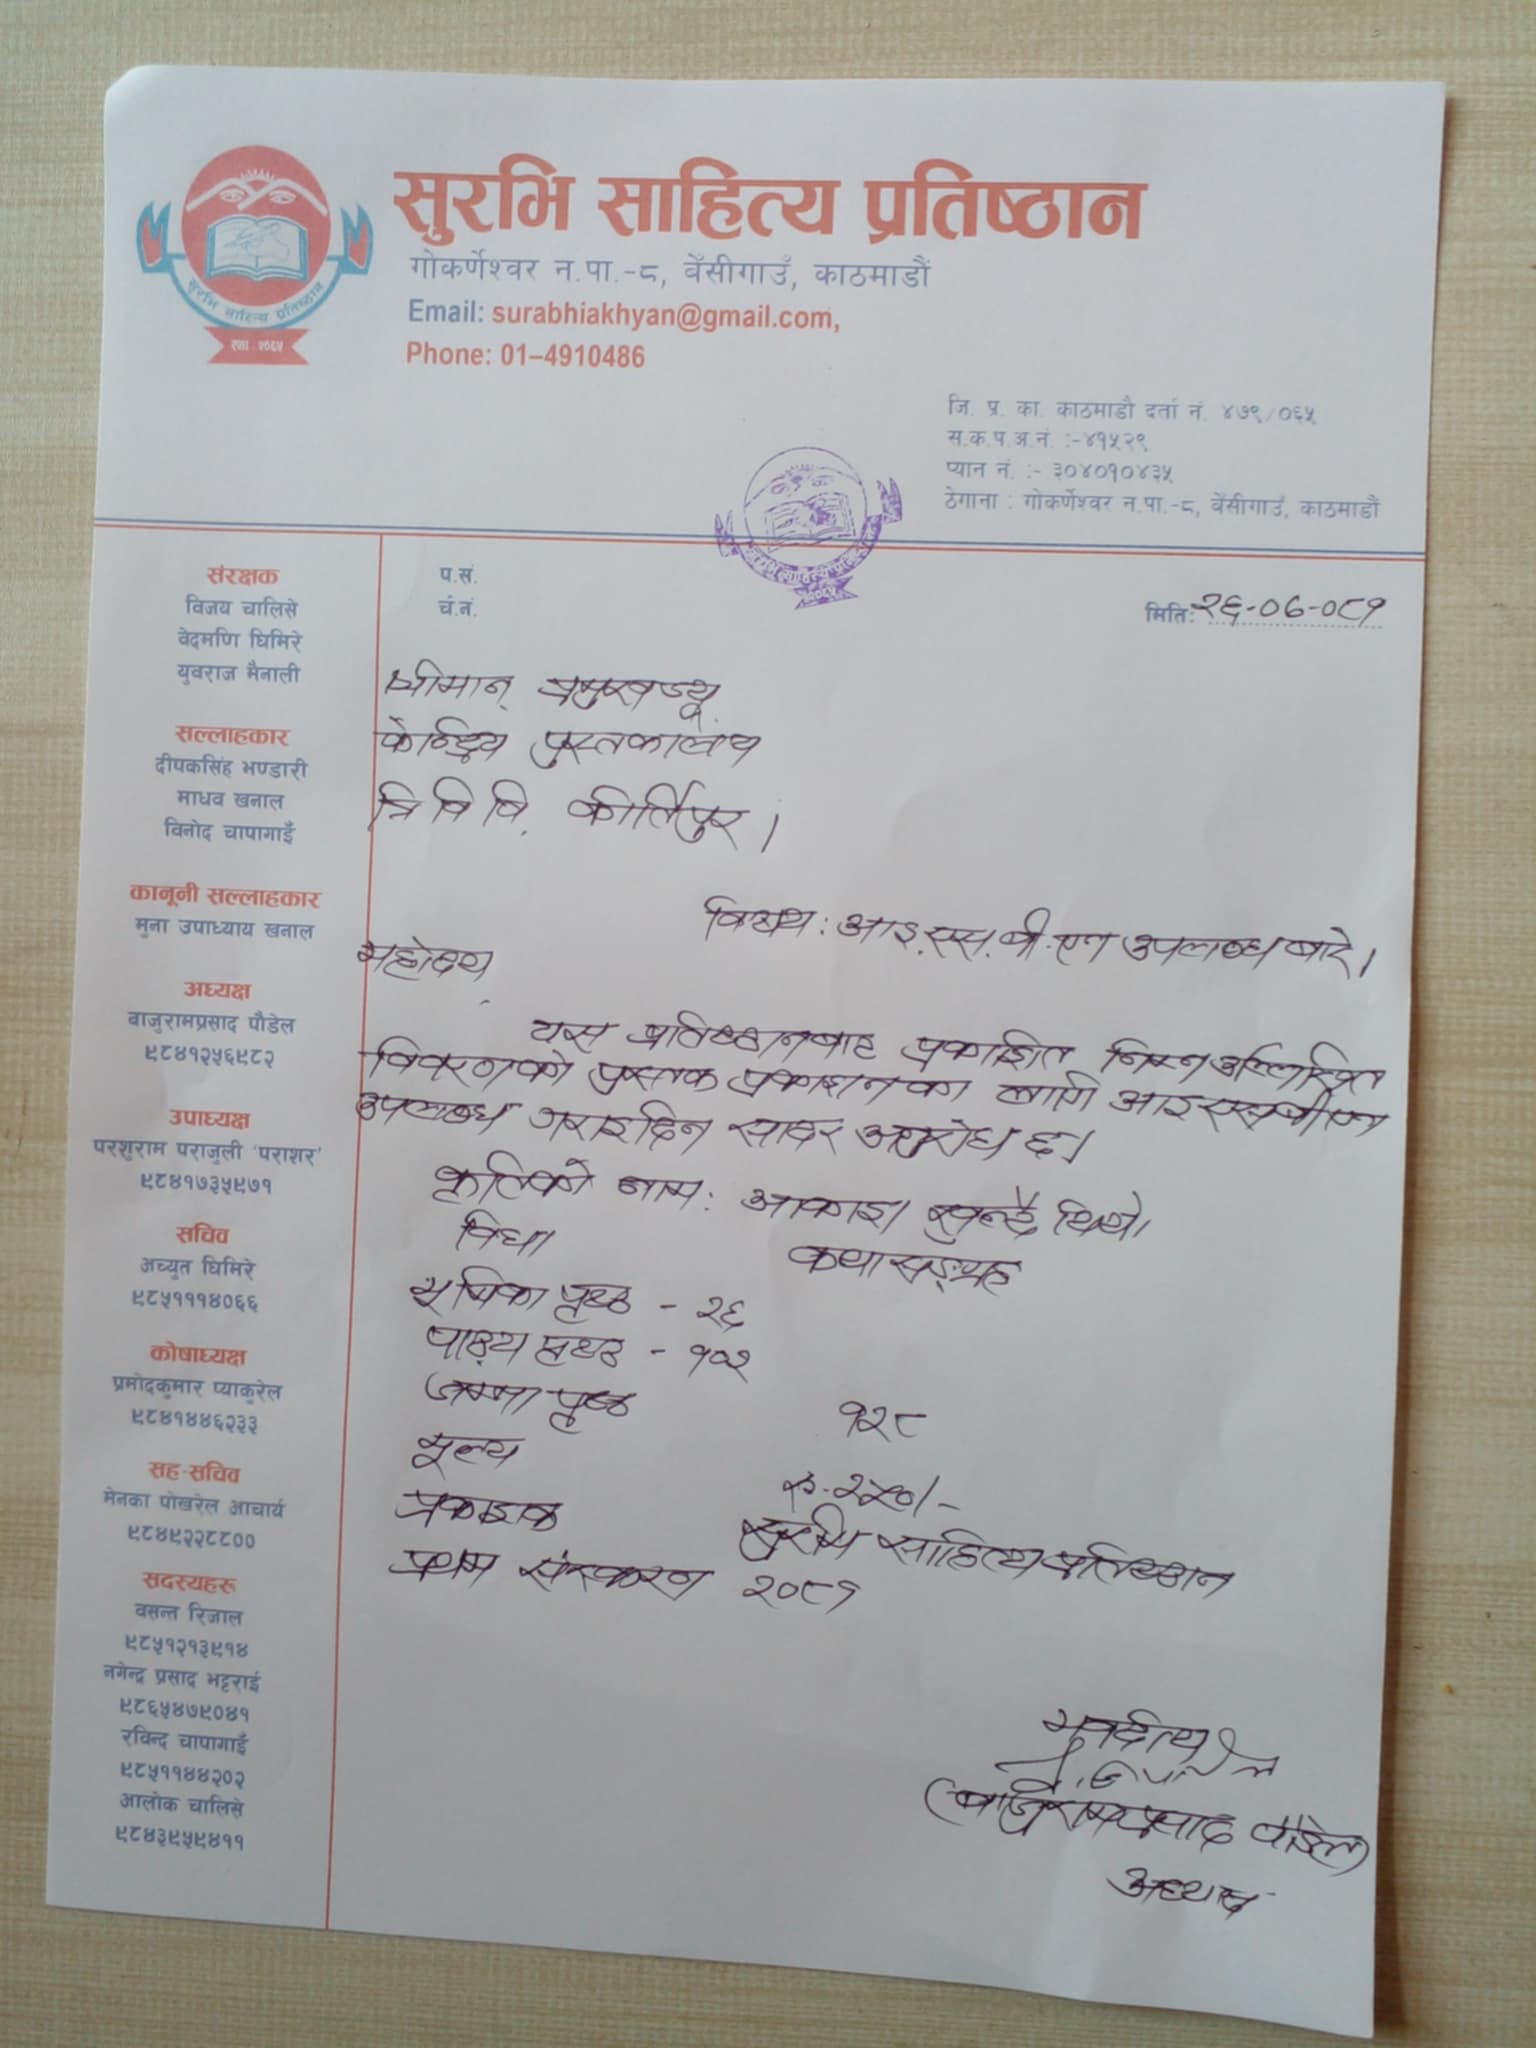 सुरभि साहित्य प्रतिष्ठान
गोकर्णेश्वर न.पा.-८, बेँसीगाउँ, काठमाडौं
Email: surabhiakhyan@gmail.com,
Phone: 01–4910486
सुरभि साहित्य प्रतिष्ठान
स्था. २०६५
जि. प्र. का. काठमाडौं दर्ता नं. ४७९/०६५
स.क.प.अ.नं. :-४१५२९
प्यान नं. :- ३०४०१०४३५
ठेगाना : गोकर्णेश्वर न.पा.-८, बेँसीगाउँ, काठमाडौं
संरक्षक
विजय चालिसे
वेदमणि घिमिरे
युवराज मैनाली
सल्लाहकार
दीपकसिंह भण्डारी
माधव खनाल
विनोद चापागाईँ
कानूनी सल्लाहकार
मुना उपाध्याय खनाल
अध्यक्ष
बाजुरामप्रसाद पौडेल
९८४१२५६९८२
उपाध्यक्ष
परशुराम पराजुली 'पराशर'
९८४१७३५९७१
सचिव
अच्युत घिमिरे
९८५१११४०६६
कोषाध्यक्ष
प्रमोदकुमार प्याकुरेल
९८४१४४६२३३
सह-सचिव
मेनका पोखरेल आचार्य
९८४९२२८८००
सदस्यहरू
वसन्त रिजाल
९८५१२१३९१४
नगेन्द्र प्रसाद भट्टराई
९८६५४७९०४१
रविन्द्र चापागाईँ
९८५११४४२०२
आलोक चालिसे
९८४३९५९४११
प.सं.
च.नं.
मिति: २६-०६-०८१
श्रीमान् प्रमुखज्यू
केन्द्रिय पुस्तकालय
त्रि वि वि. कीर्तिपुर।
विषय: आइ.एस.बी.एन उपलब्ध बारे।
महोदय,
यस प्रतिष्ठानबाट प्रकाशित निम्न उल्लिखित
विवरणको पुस्तक प्रकाशनका लागि आइएसबीएन
उपलब्ध गराइदिन सादर अनुरोध छ।
कृतिको नाम: आकाश रुन्दै थियो
विधा कथा सङ्ग्रह
भूमिका पृष्ठ - २६
पाठ्य पृष्ठ - १०२
जम्मा पृष्ठ १२८
मूल्य रु. २५०/-
प्रकाशक सुरभि साहित्य प्रतिष्ठान
प्रथम संस्करण २०८१
भवदीय
(बाजुरामप्रसाद पौडेल)
अध्यक्ष